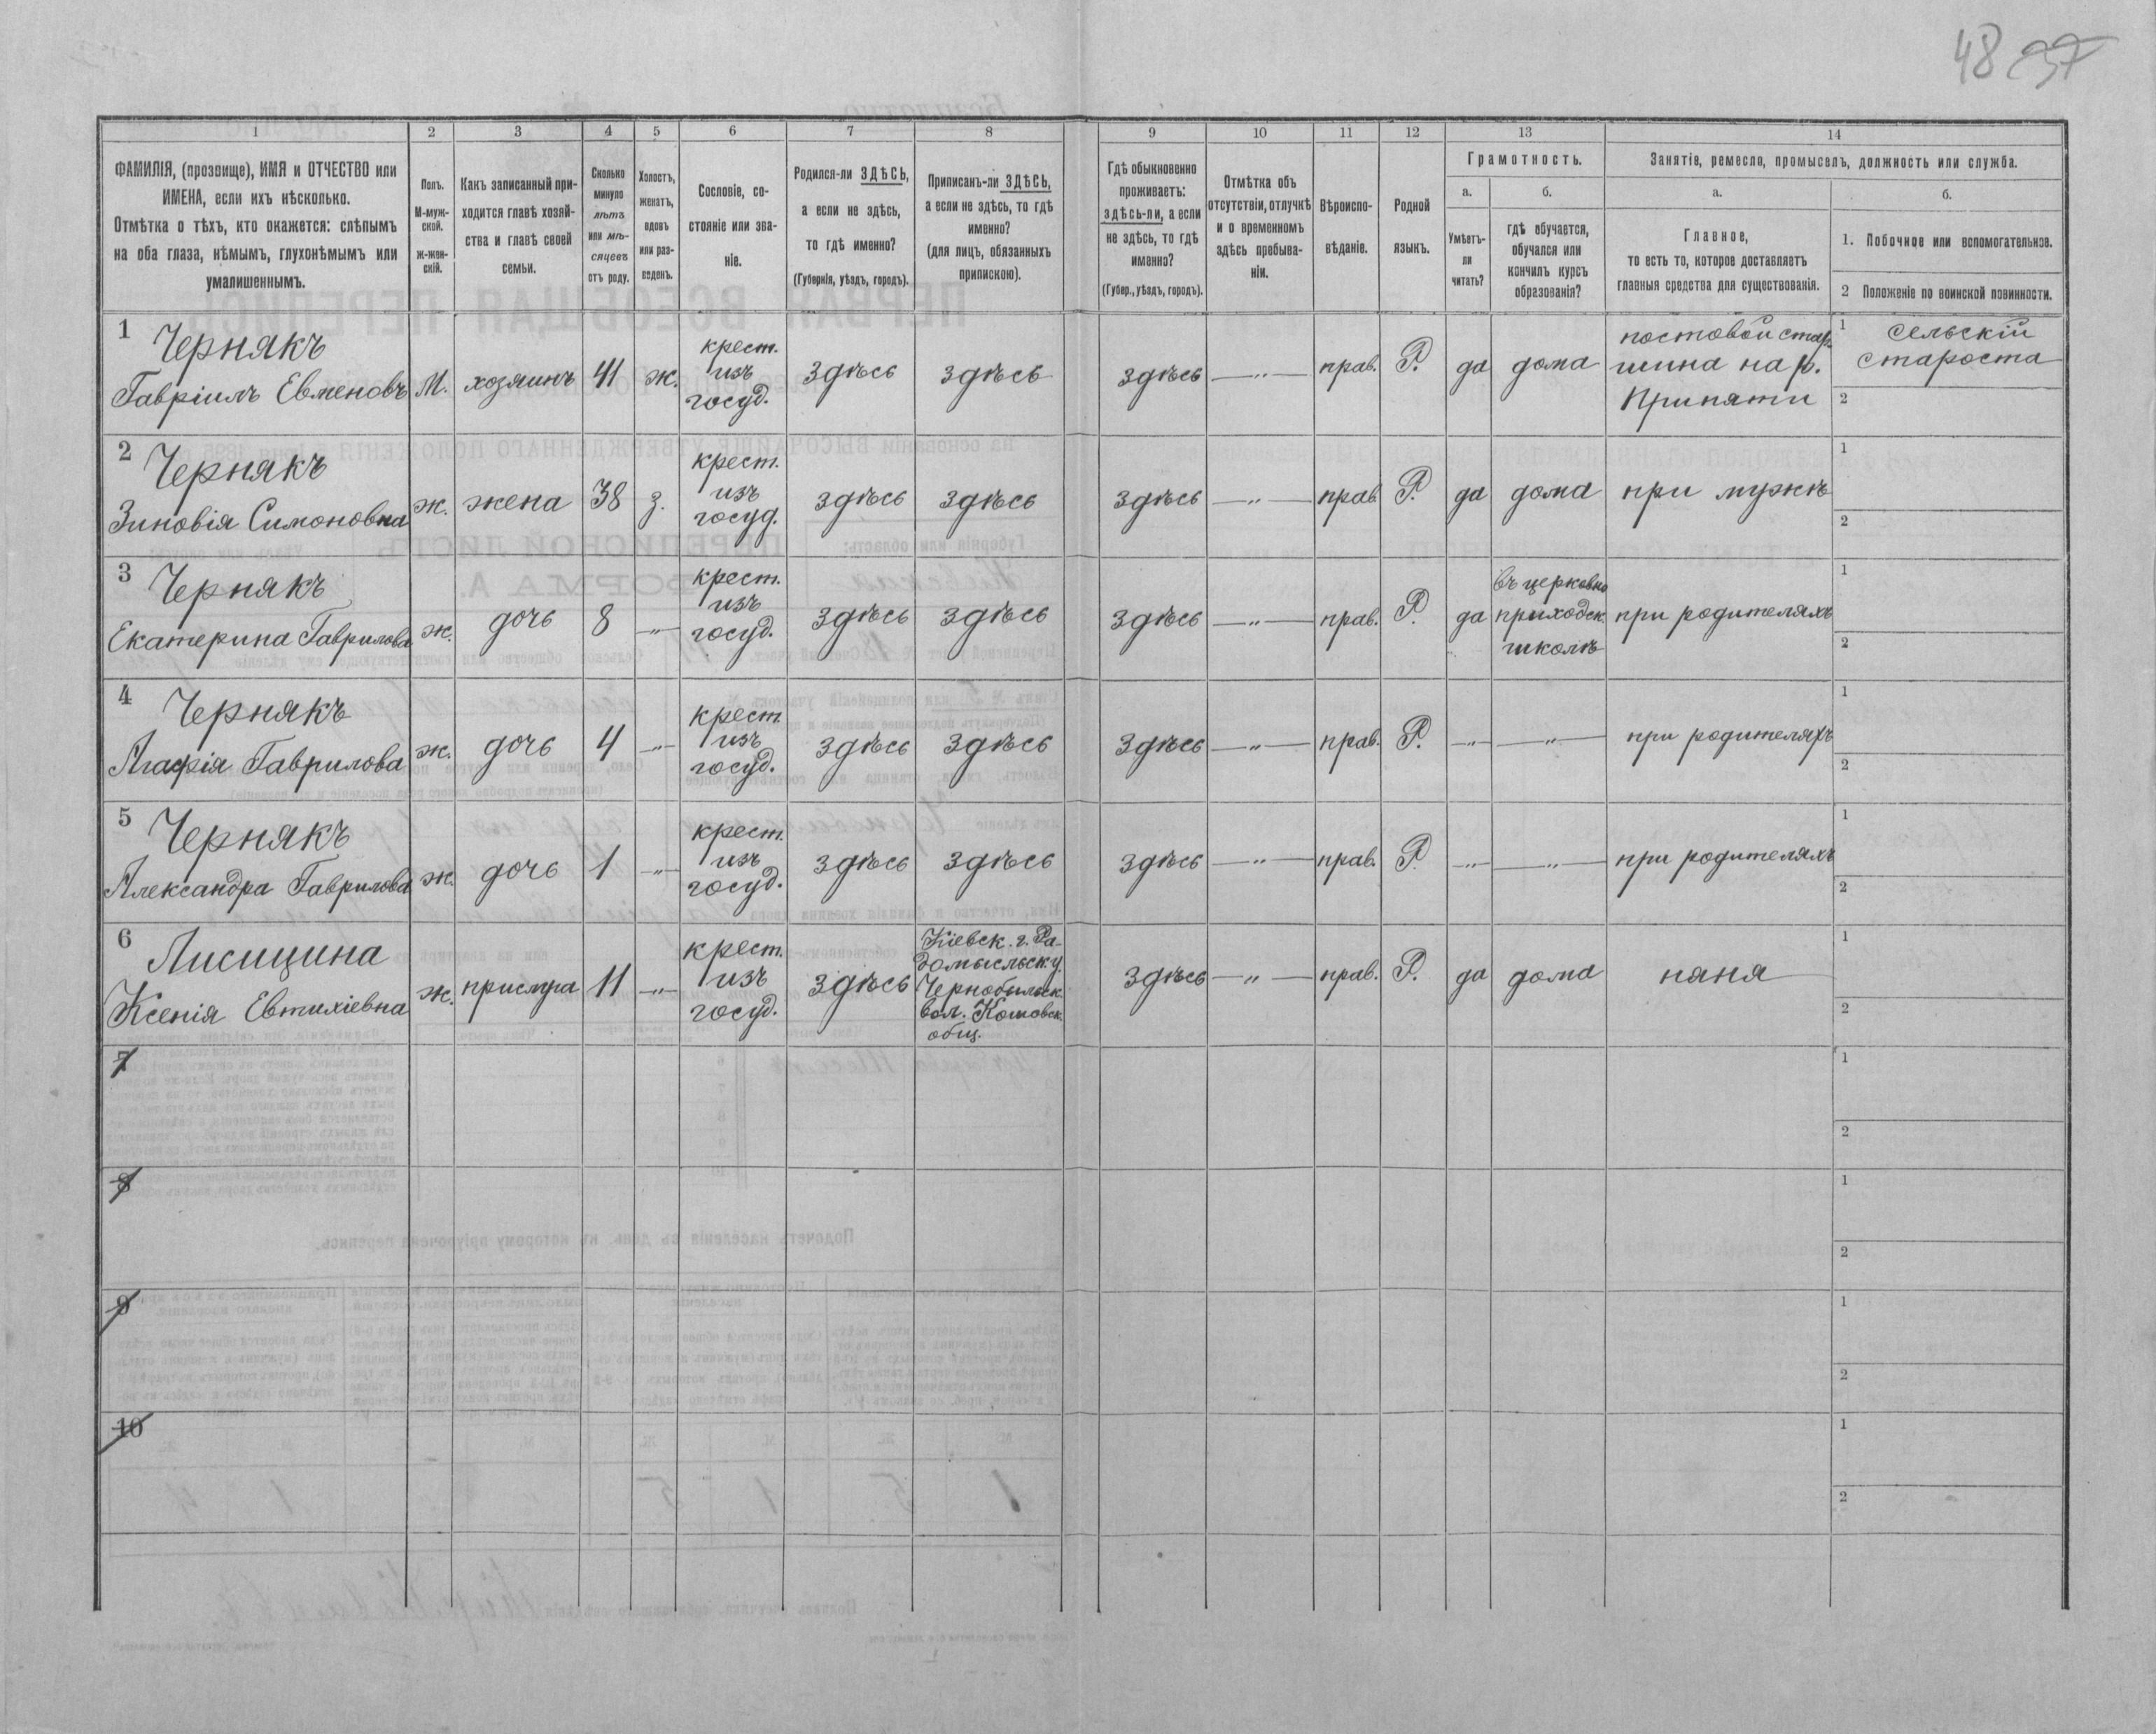 48 37
1
2
3
4
5
6
7
8
9
10
11
12
13
14
ФАМИЛІЯ, (прозвище), ИМЯ и ОТЧЕСТВО или
ИМЕНА, если ихъ нѣсколько.
Отмѣтка о тѣхъ, кто окажется: слѣпымъ
на оба глаза, нѣмымъ, глухонѣмымъ или
умалишеннымъ.
Полъ.
М-муж-
ской.
Ж-жен-
скій.
Какъ записанный при-
ходится главѣ хозяй-
ства и главѣ своей
семьи.
Сколько
минуло
лѣтъ
или мѣ-
сяцевъ
отъ роду.
Холостъ,
женатъ,
вдовъ
или раз-
веденъ.
Сословіе, со-
стояніе или зва-
ніе.
Родился-ли ЗДѢСЬ,
а если не здѣсь,
то гдѣ именно?
(Губернія, уѣздъ, городъ).
Приписанъ-ли ЗДѢСЬ,
а если не здѣсь, то гдѣ
именно?
(для лицъ, обязанныхъ
припискою).
Гдѣ обыкновенно
проживаетъ:
здѣсь-ли, а если
не здѣсь, то гдѣ
именно?
(Губер., уѣздъ, городъ).
Отмѣтка объ
отсутствіи, отлучкѣ
и о временномъ
здѣсь пребыва-
ніи.
Вѣроиспо-
вѣданіе.
Родной
языкъ.
Грамотность.
а.
Умѣетъ-
ли
читать?
б.
гдѣ обучается,
обучался или
кончилъ курсъ
образованія?
Занятіе, ремесло, промыселъ, должность или служба.
а.
Главное,
то есть то, которое доставляетъ
главныя средства для существованія.
б.
1. Побочное или вспомогательное.
2 Положеніе по воинской повинности.
1 Чернякъ
Гавріилъ Евменовъ М. хозяинъ 41 ж. крест. изъ госуд. здѣсь здѣсь здѣсь —„— прав. Р. да дома постовой стар-
шина на р.
Припяти 1 сельскій
староста
2
2 Чернякъ
Зиновія Симоновна ж. жена 38 з. крест. изъ госуд. здѣсь здѣсь здѣсь —„— прав. Р. да дома при мужѣ 1
2
3 Чернякъ
Екатерина Гаврилова ж. дочь 8 —„— крест. изъ госуд. здѣсь здѣсь здѣсь —„— прав. Р. да въ церковно
приходск.
школѣ при родителяхъ 1
2
4 Чернякъ
Агафія Гаврилова ж. дочь 4 —„— крест. изъ госуд. здѣсь здѣсь здѣсь —„— прав. Р. —„— —„— при родителяхъ 1
2
5 Чернякъ
Александра Гаврилова ж. дочь 1 —„— крест. изъ госуд. здѣсь здѣсь здѣсь —„— прав. Р. —„— —„— при родителяхъ 1
2
6 Лисицина
Ксенія Евтихіевна ж. прислуга 11 —„— крест. изъ госуд. здѣсь Кіевск. г. Ра-
домысльск. у.
Чернобыльск.
вол. Кошовск.
общ. здѣсь —„— прав. Р. да дома няня 1
2
7
1
2
8
1
2
9
1
2
10
1
2